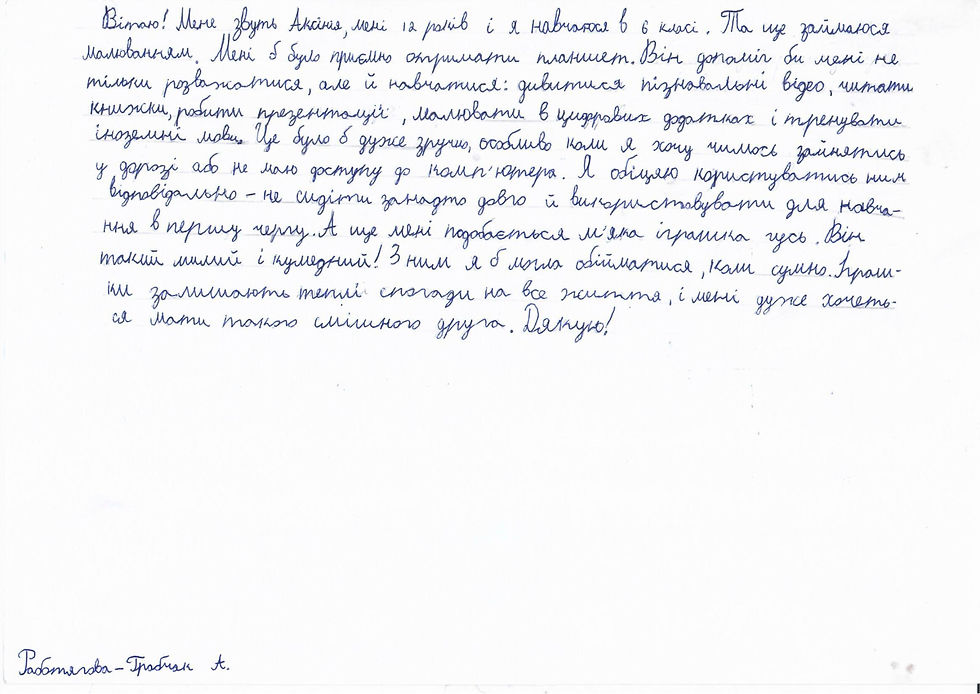 Вітаю! Мене звуть Аксінія, мені 12 років і я навчаюся в 6 класі. Та ще займаюся
малюванням. Мені б було приємно отримати планшет. Він допоміг би мені не
тільки розважатися, але й навчатися: дивитися пізнавальні відео, читати
книжки, робити презентації, малювати в цифрових додатках і тренувати
іноземні мови. Це було б дуже зручно, особливо коли я хочу чимось зайнятись
у дорозі або не маю доступу до комп'ютера. Я обіцяю користуватись ним
відповідально – не сидіти занадто довго й використовувати для навча-
ння в першу чергу. А ще мені подобається м'яка іграшка гусь. Він
такий милий і кумедний! З ним я б могла обійматися, коли сумно. Іграш-
ки залишають теплі спогади на все життя, і мені дуже хочеть-
ся мати такого смішного друга. Дякую!
А.